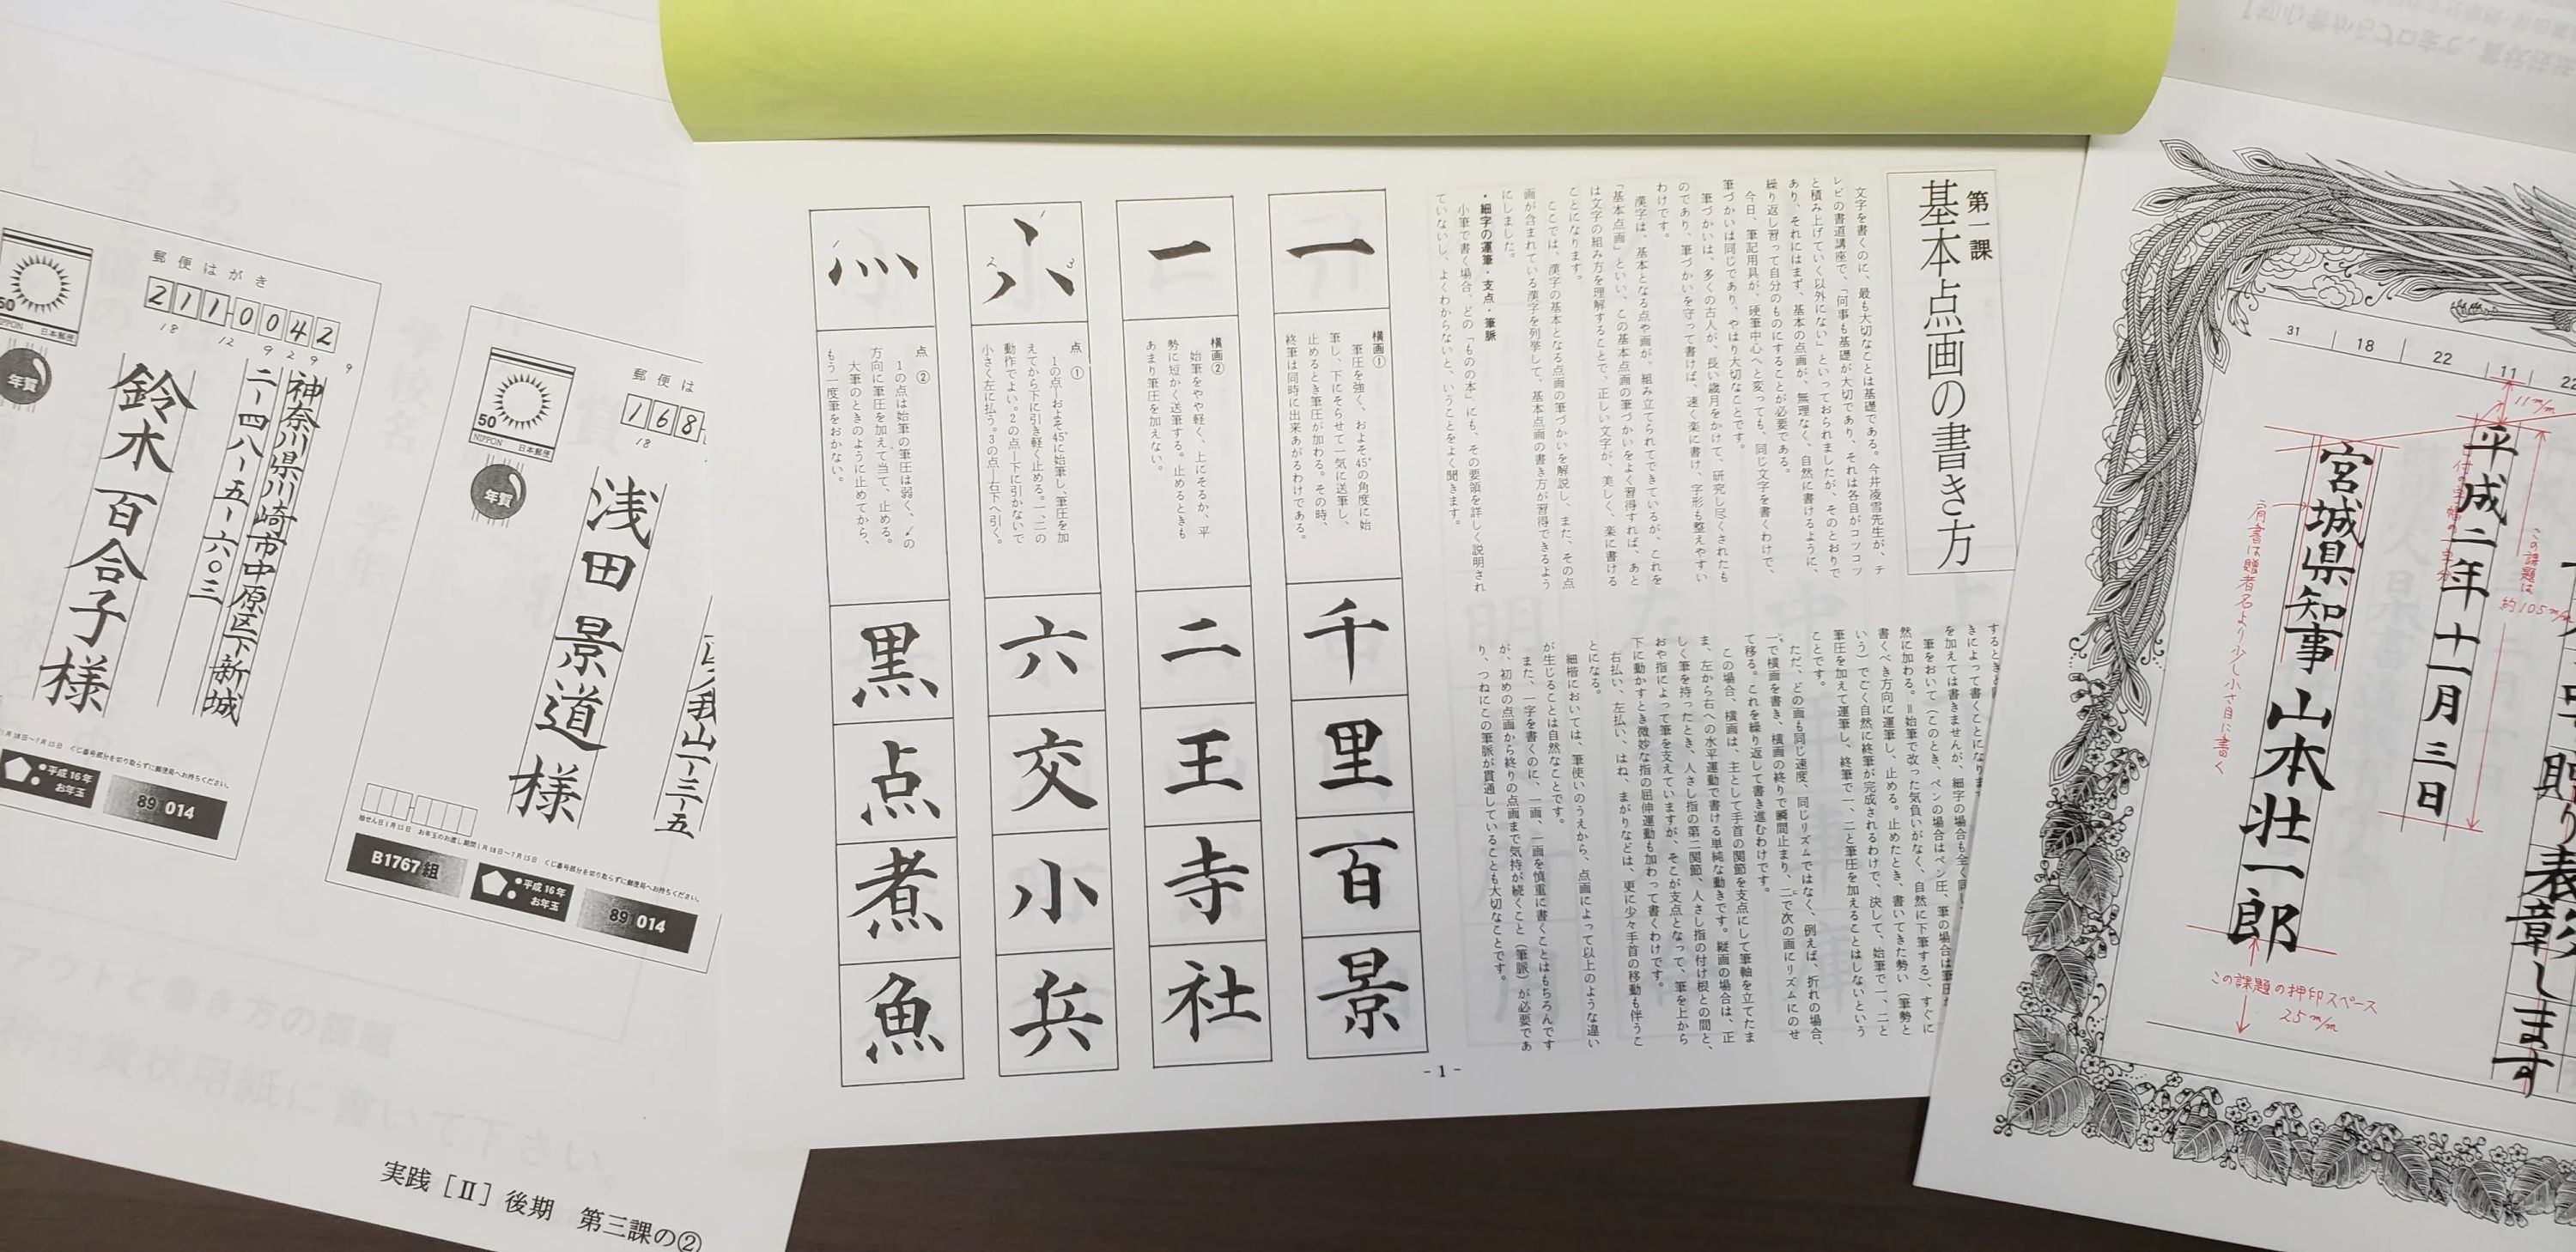 第一課
基本点画の書き方
文字を書くのに、最も大切なことは基礎である。今井凌雪先生が、テ
レビの書道講座で、「何事も基礎が大切であり、それは各自がコツコツ
と積み上げていく以外にない」といっておられましたが、そのとおりで
あり、それにはまず、基本の点画が、無理なく、自然に書けるように、
繰り返し習って自分のものにすることが必要である。
今日、筆記用具が、硬筆中心へと変っても、同じ文字を書くわけで、
筆づかいは同じであり、やはり大切なことです。
筆づかいは、多くの古人が、長い歳月をかけて、研究し尽くされたも
のであり、筆づかいを守って書けば、速く楽に書け、字形も整えやすい
わけです。
漢字は、基本となる点や画が、組み立てられてできているが、これを
「基本点画」といい、この基本点画の筆づかいをよく習得すれば、あと
は文字の組み方を理解することで、正しい文字が、美しく、楽に書ける
ことになります。
ここでは、漢字の基本となる点画の筆づかいを解説し、また、その点
画が含まれている漢字を列挙して、基本点画の書き方が習得できるよう
にしました。
・細字の運筆・支点・筆脈
小筆で書く場合、どの「ものの本」にも、その要領を詳しく説明され
ていないし、よくわからないと、いうことをよく聞きます。
きによって書くことになります
を加えては書きませんが、細字の場合も全く同じ
筆をおいて（このとき、ペンの場合はペン圧、筆の場合は筆圧が
然に加わる。＝始筆で改った気負いがなく、自然に下筆する）、すぐに
書くべき方向に運筆し、止める。止めたとき、書いてきた勢い（筆勢と
いう）でごく自然に終筆が完成されるわけで、決して、始筆で一、二と
筆圧を加えて運筆し、終筆で一、二と筆圧を加えることはしないという
ことです。
ただ、どの画も同じ速度、同じリズムではなく、例えば、折れの場合、
一、で横画を書き、横画の終りで瞬間止まり、二で次の画にリズムにのせ
て移る。これを繰り返して書き進むわけです。
この場合、横画は、主として手首の関節を支点にして筆軸を立てたま
ま、左から右への水平運動で書ける単純な動きです。縦画の場合は、正
しく筆を持ったとき、人さし指の第二関節、人さし指の付け根との間と、
おや指によって筆を支えていますが、そこが支点となって、筆を上から
下に動かすとき微妙な指の屈伸運動も加わって書くわけです。
右払い、左払い、はね、まがりなどは、更に少々手首の移動も伴うこ
とになる。
細楷においては、筆使いのうえから、点画によって以上のような違い
が生じることは自然なことです。
また、一字を書くのに、一画、二画を慎重に書くことはもちろんです
が、初めの点画から終りの点画まで気持が続くこと（筆脈）が必要であ
り、つねにこの筆脈が貫通していることも大切なことです。
一
横画①
筆圧を強く、およそ45°の角度に始
筆し、下にそらせて一気に送筆し、
止めるとき筆圧が加わる。その時、
終筆は同時に出来あがるわけである。
千
里
百
景
一
横画②
始筆をやや軽く、上にそるか、平
勢に短かく送筆する。止めるときも
あまり筆圧を加えない。
二
王
寺
社
1
2
3
点①
1の点―およそ45°に始筆し、筆圧を加
えてから下に引き軽く止める。一、二の
動作でよい。2の点―下に引かないで
小さく左に払う。3の点―右下へ引く。
六
交
小
兵
灬
点②
1の点は始筆の筆圧は弱く、ノの
方向に筆圧を加えて当て、止める。
大筆のときのように止めてから、
もう一度筆をおかない。
黒
点
煮
魚
- 1 -
郵便はがき
211-0042
18
12
9
2
9
9
50
NIPPON
日本郵便
年賀
神奈川県川崎市中原区下新城
二-四八-五-六〇三
鈴木百合子様
くじ番号部分を切り取らずに郵便局へお持ちください。
平成16年
お年玉
89 014
郵便は
168-
18
50
NIPPON
日本郵便
年賀
我山一-三-五
浅田景道様
抽せん日1月15日 お年玉のお渡し期間1月18日〜7月15日 くじ番号部分を切り取らずに郵便局へお持ちください。
B1767組
平成16年
お年玉
89 014
実践［Ⅱ］後期 第三課の②
31
18
22
11
22
11m/m
表彰します
この課題は
約105m/m
平成二年十一月三日
宮城県知事 山本壮一郎
肩書は贈者名より少し小さ目に書く
この課題の押印スペース
25m/m